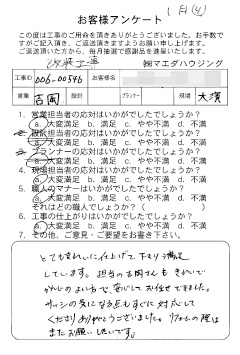 1月(4)
お客様アンケート
この度は工事のご用命を頂きありがとうございました。お手数で
すがご記入頂き、ご返送頂きますようお願い申し上げます。
ご返送頂いた方から、毎月抽選で感謝品を進呈いたします。
㈱マエダハウジング
工事ID 006-00346 お客様名
営業 吉岡 設計 プランナー 現場 大濱
1. 営業担当者の応対はいかがでしたでしょうか?
a. 大変満足 b. 満足 c. やや不満 d. 不満
2. 設計担当者の応対はいかがでしたでしょうか?
a. 大変満足 b. 満足 c. やや不満 d. 不満
3. プランナーの応対はいかがでしたでしょうか?
a. 大変満足 b. 満足 c. やや不満 d. 不満
4. 現場担当者の応対はいかがでしたでしょうか?
a. 大変満足 b. 満足 c. やや不満 d. 不満
5. 職人のマナーはいかがでしたでしょうか?
a. 大変満足 b. 満足 c. やや不満 d. 不満
それはどの職人でしょうか? (
6. 工事の仕上がりはいかがでしたでしょうか?
a. 大変満足 b. 満足 c. やや不満 d. 不満
7. その他、ご意見・ご要望をお書き下さい。
とてもきれいに仕上げて下さり満足
しています。担当の吉岡さんもきれいで
かんじのよい方で、安心してお任せできました。
サッシの気になる点もすぐに対応して
くださりありがとうございました。リフォームの際は
またお願いしたいです。